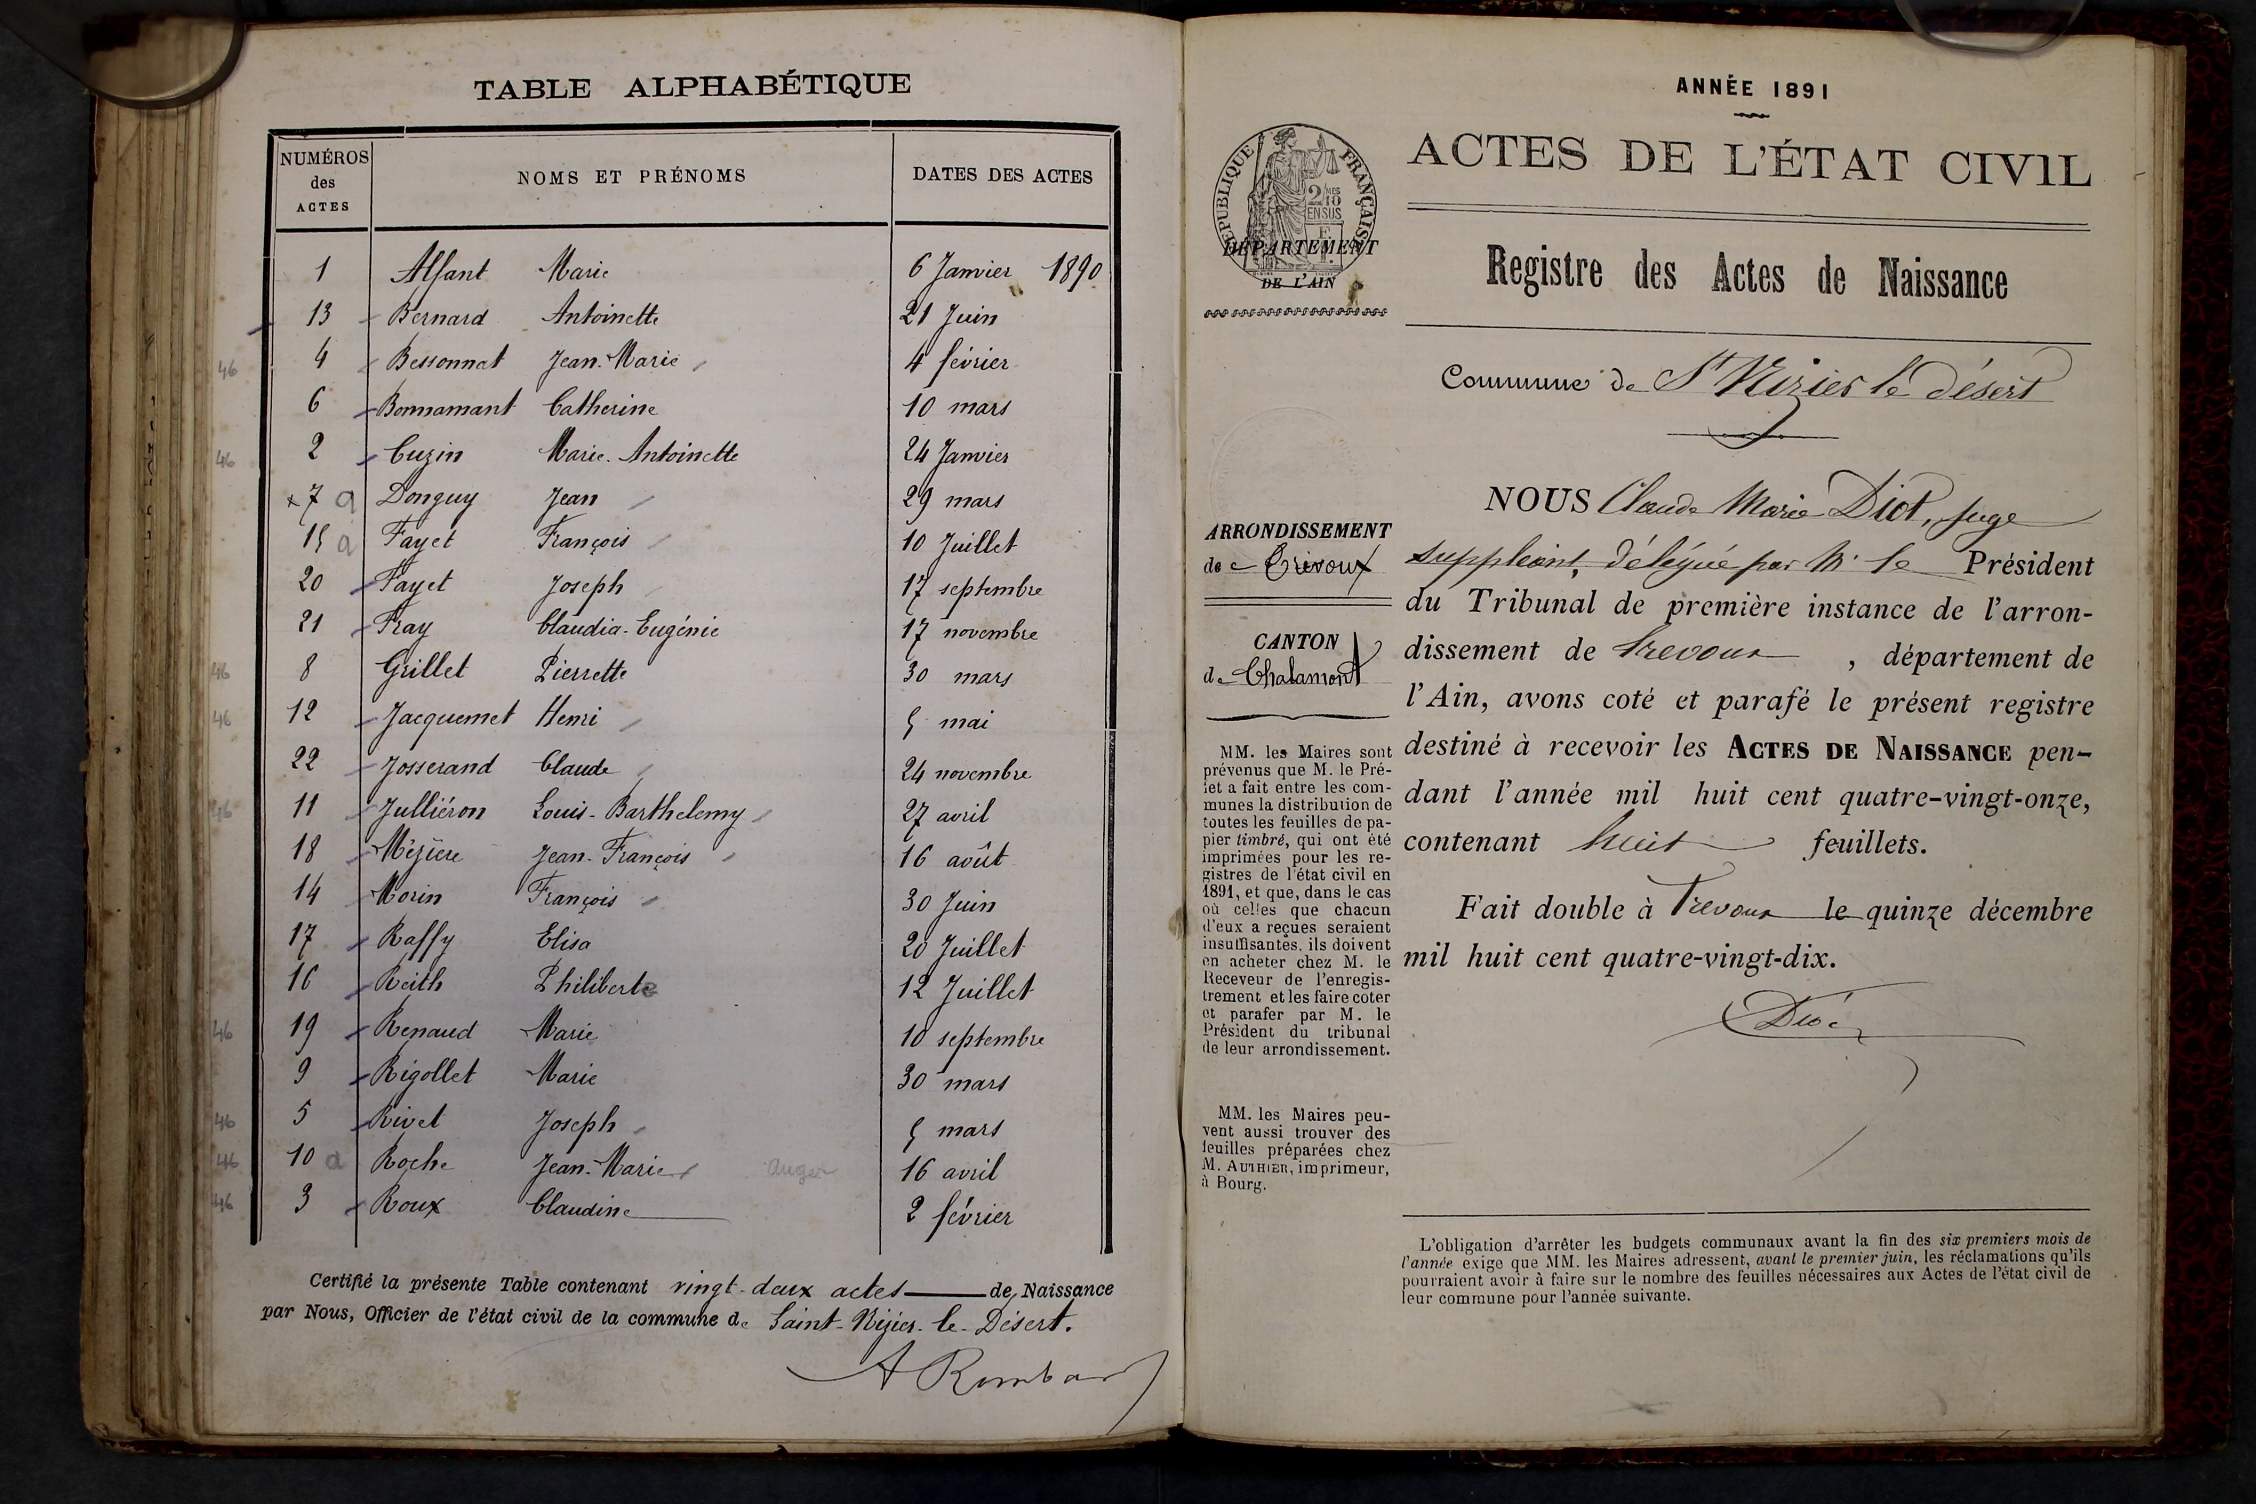 TABLE ALPHABÉTIQUE
NUMÉROS des ACTES NOMS ET PRÉNOMS DATES DES ACTES
1 Alfant Marie 6 Janvier 1890
13 Bernard Antoinette 21 Juin
46 4 Bessonnat Jean-Marie 4 février
6 Bonnamant Catherine 10 mars
46 2 Cuzin Marie-Antoinette 24 Janvier
x 7 a Donguy Jean 29 mars
15 a Fayet François 10 Juillet
20 Fayet Joseph 17 septembre
21 Fray Claudia-Eugénie 17 novembre
46 8 Grillet Pierrette 30 mars
46 12 Jacquemet Henri 5 mai
22 Josserand Claude 24 novembre
46 11 Julliéron Louis-Barthelemy 27 avril
18 Mézière Jean-François 16 août
14 Morin François 30 Juin
17 Raffy Elisa 20 Juillet
16 Reith Philiberte 12 Juillet
46 19 Renaud Marie 10 septembre
9 Rigollet Marie 30 mars
46 5 Rivet Joseph 5 mars
46 10 a Roche Jean-Marie auger 16 avril
46 3 Roux Claudine 2 février
Certifié la présente Table contenant vingt-deux actes de Naissance
par Nous, Officier de l'état civil de la commune de Saint-Nizier-le-Désert.
ANNÉE 1891
ACTES DE L'ÉTAT CIVIL
RÉPUBLIQUE FRANÇAISE
2/10 EN SUS
DÉPARTEMENT
DE L'AIN
Registre des Actes de Naissance
Commune de St Nizier le désert
ARRONDISSEMENT
de Trévoux
CANTON
de Chalamont
MM. les Maires sont
prévenus que M. le Pré-
fet a fait entre les com-
munes la distribution de
toutes les feuilles de pa-
pier timbré, qui ont été
imprimées pour les re-
gistres de l'état civil en
1891, et que, dans le cas
où celles que chacun
d'eux a reçues seraient
insuffisantes, ils doivent
en acheter chez M. le
Receveur de l'enregis-
trement et les faire coter
et parafer par M. le
Président du tribunal
de leur arrondissement.
MM. les Maires peu-
vent aussi trouver des
feuilles préparées chez
M. AUTHIER, imprimeur,
à Bourg.
NOUS Claude Marie Diot, juge
suppléant, délégué par M. le Président
du Tribunal de première instance de l'arron-
dissement de Trevoux, département de
l'Ain, avons coté et parafé le présent registre
destiné à recevoir les ACTES DE NAISSANCE pen-
dant l'année mil huit cent quatre-vingt-onze,
contenant huit feuillets.
Fait double à Trevoux le quinze décembre
mil huit cent quatre-vingt-dix.
Diot
L'obligation d'arrêter les budgets communaux avant la fin des six premiers mois de
l'année exige que MM. les Maires adressent, avant le premier juin, les réclamations qu'ils
pourraient avoir à faire sur le nombre des feuilles nécessaires aux Actes de l'état civil de
leur commune pour l'année suivante.